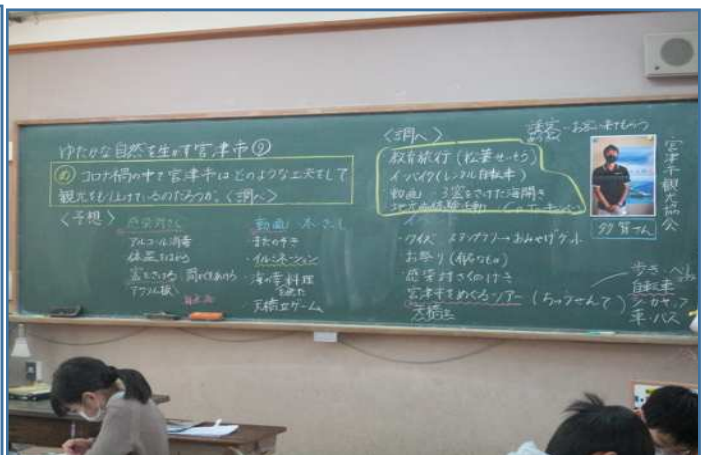 ゆたかな自然を生かす宮津市⑨
め コロナ禍の中で宮津市はどのような工夫をして
観光をもり上げているのだろうか。〈調べ〉
〈予想〉
感染対さく
アルコール消毒
体温をはかる
密をさける 間かくをあける
アクリル板
動画
・イルミネーション
・海の幸料理
天橋立ゲーム
〈調べ〉
教育旅行(松葉
イーバイク(レンタル自転車)
動画 3密をさけた海開き
・クイズ スタンプラリー→おみやげゲット
お祭り
感染対さくの
宮津市をめぐるツアー(ちゅうせんで)
天橋立
誘客…お客に来てもらう
宮津市観光協会
多賀さん
歩き
自転車
車・バス